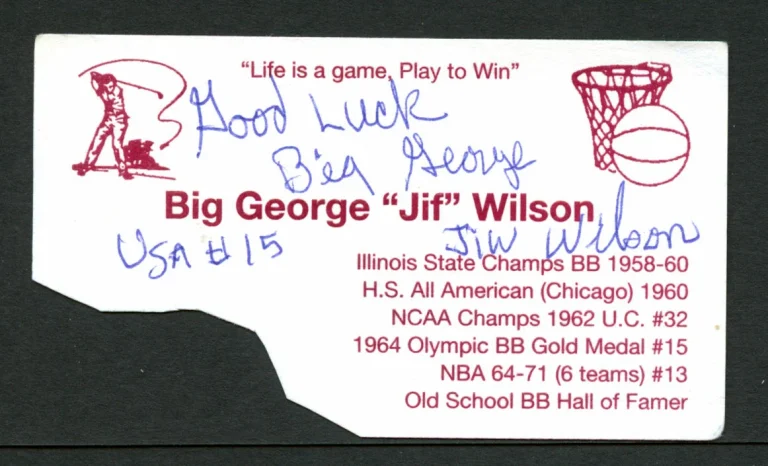 “Life is a game, Play to Win”
Good Luck
Big George
Big George “Jif” Wilson
USA #15 Jif Wilson
Illinois State Champs BB 1958-60
H.S. All American (Chicago) 1960
NCAA Champs 1962 U.C. #32
1964 Olympic BB Gold Medal #15
NBA 64-71 (6 teams) #13
Old School BB Hall of Famer